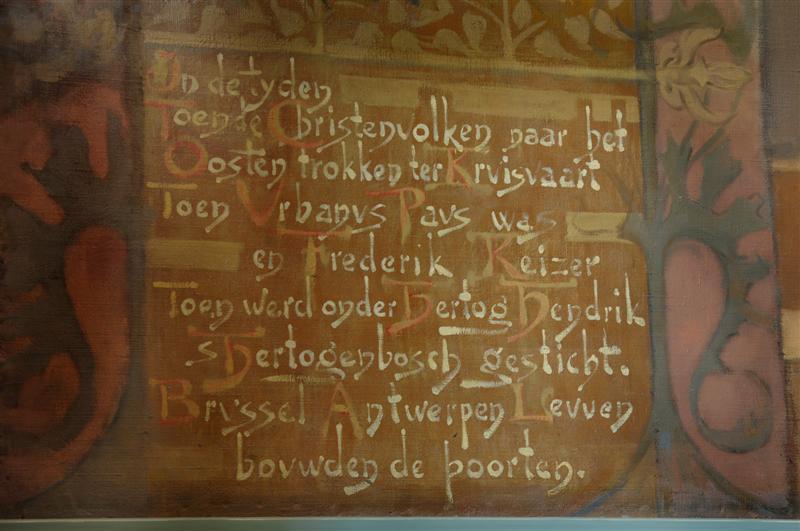 In de tyden
Toen de Christenvolken naar het
Oosten trokken ter Krvisvaart
Toen Vrbanvs Pavs was
en Frederik Keizer
Toen werd onder Hertog Hendrik
sHertogenbosch gesticht.
Brvssel Antwerpen Levven
bovwden de poorten.